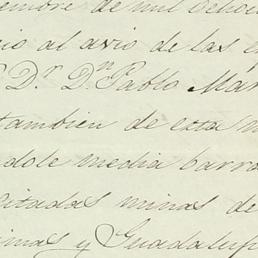 embre de mil ochoci
cio al avio de las
Dr. Dn. Pablo Mar
tambien de esta
dole media barra
citadas minas de
nimas y Guadalup